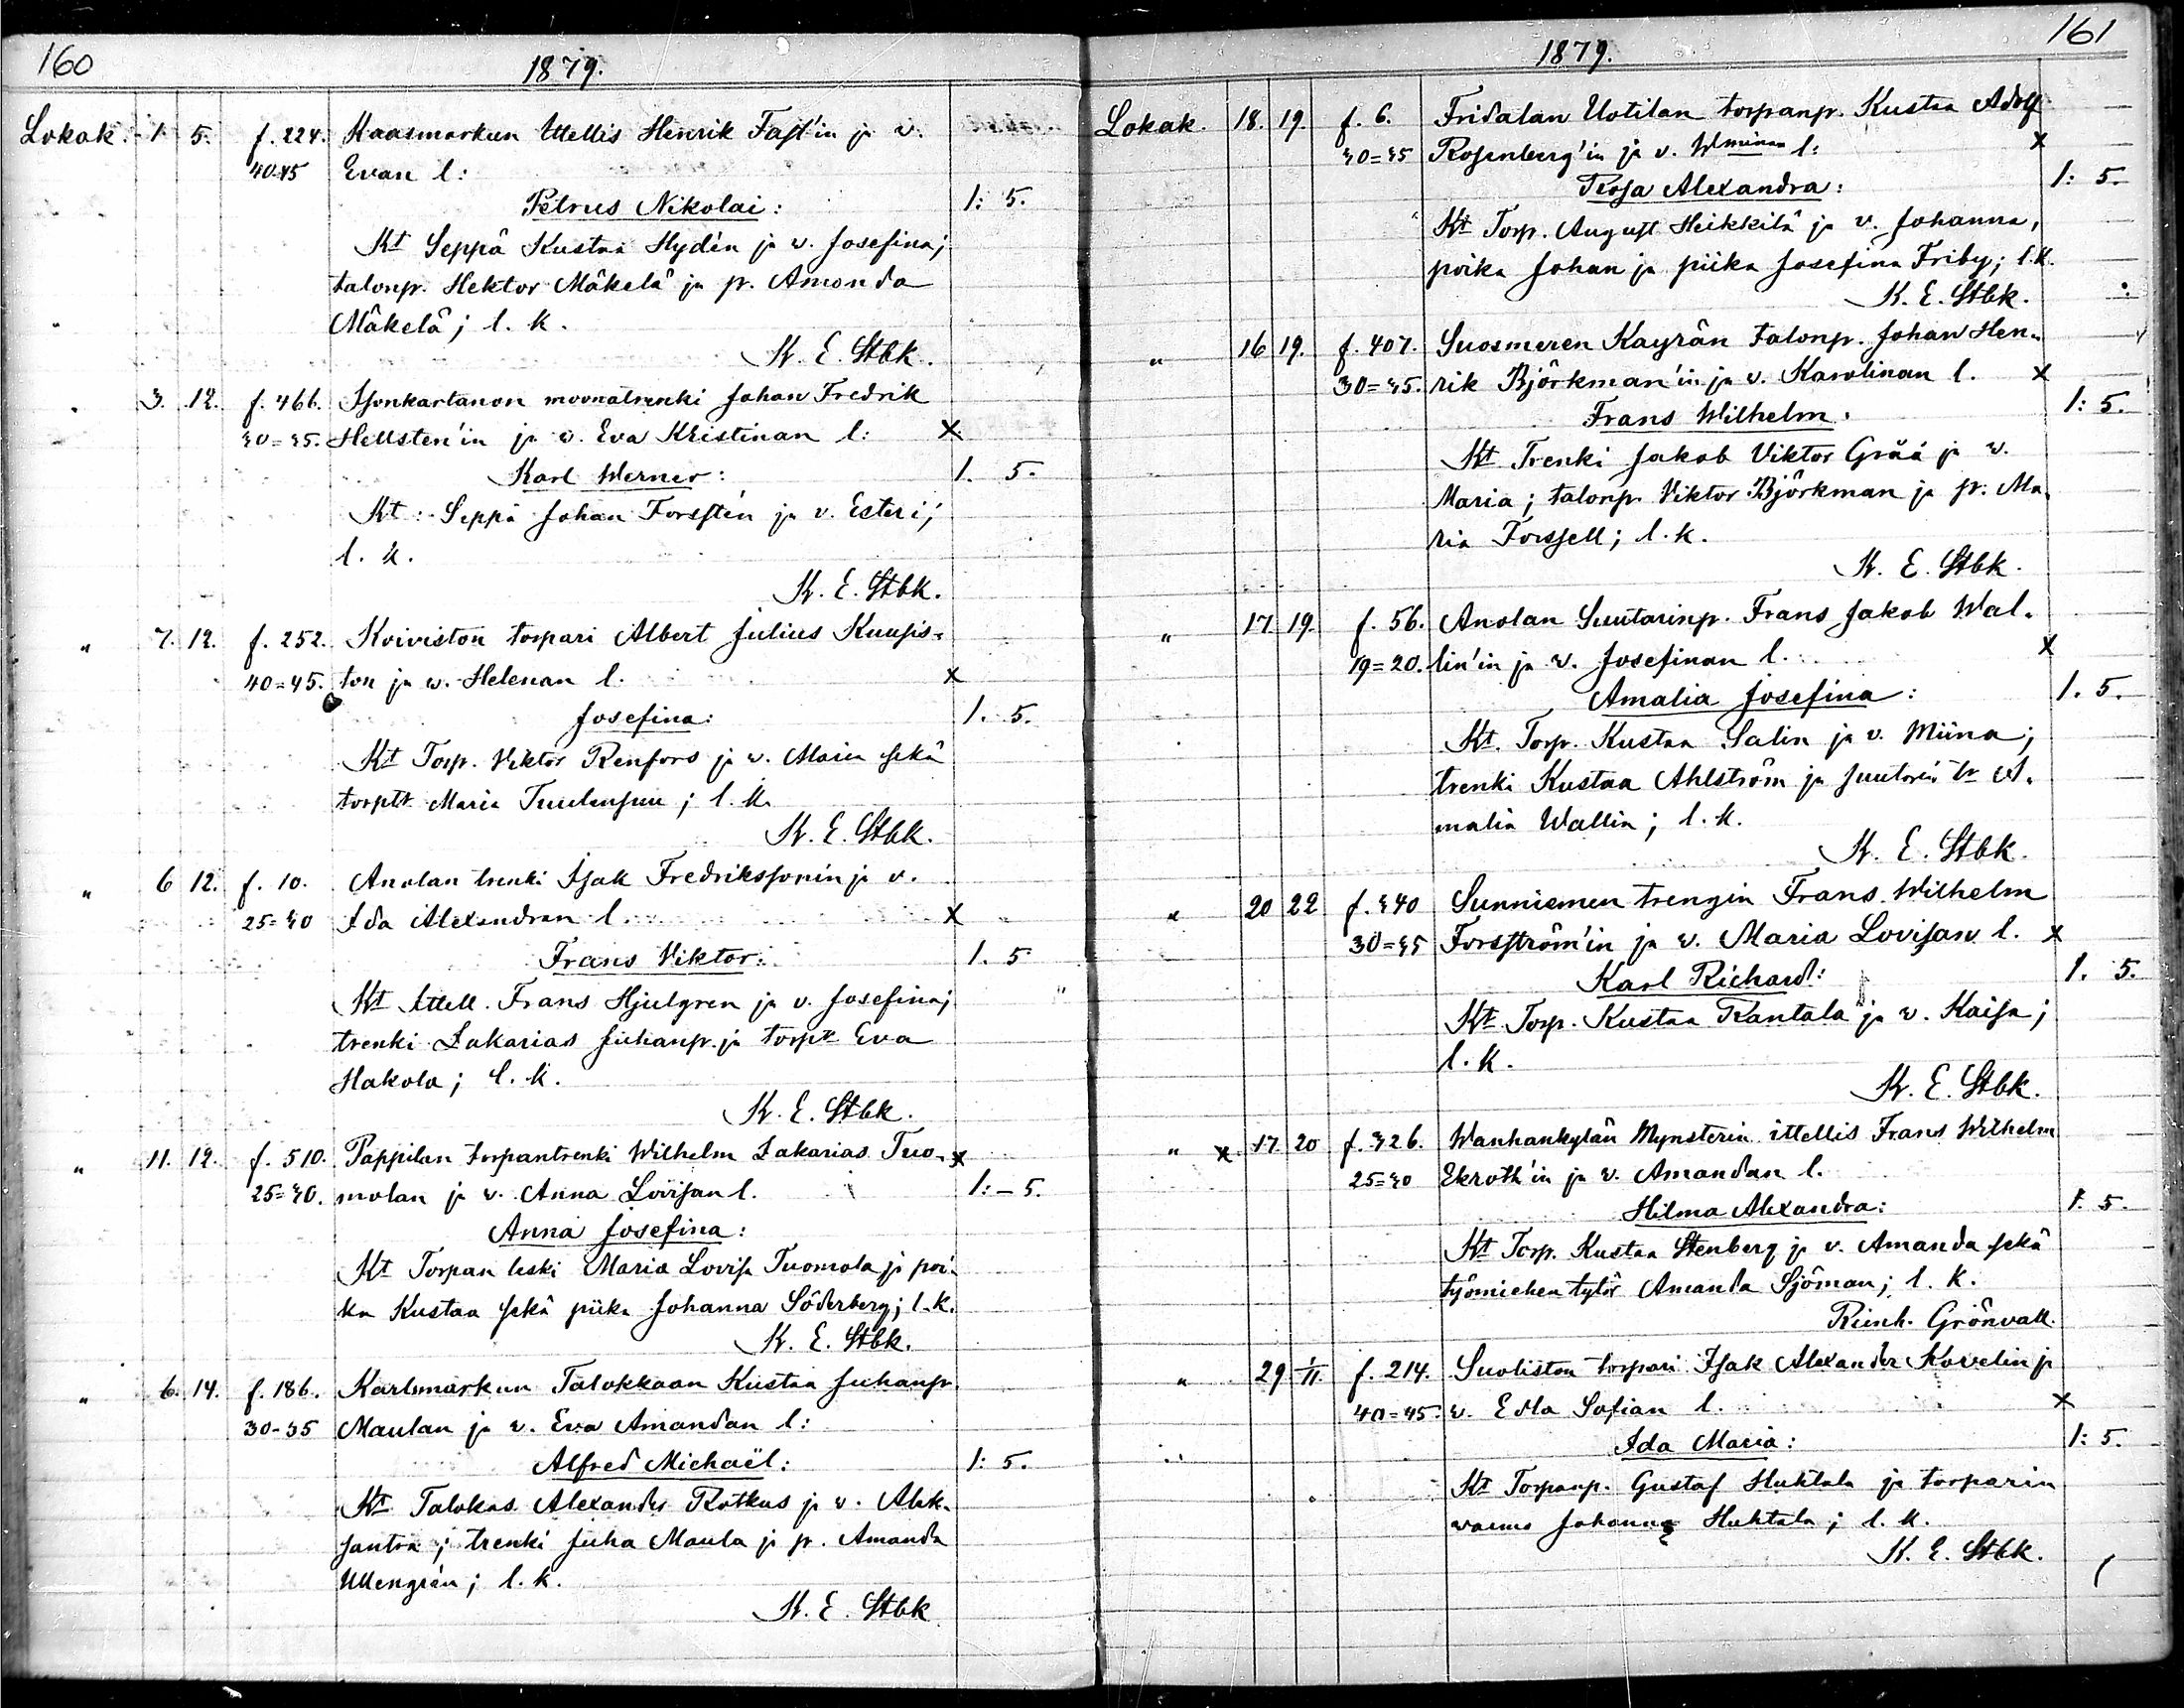 160
1879.
Lokak. 1. 5. f. 224. Kaasmarkun Ittellis Henrik Fast'in ja v.
40-45 Evan l:
Petrus Nikolai: 1: 5.
Kt Seppä Kustaa Hydén ja v. Josefina;
talonp. Hektor Mäkelä ja p. Amanda
Mäkelä; l. k.
K. E. Stbk.
" 3. 12. f. 466. Isonkartanon muonatrenki Johan Fredrik
30=35. Hellsten'in ja v. Eva Kristinan l: x
Karl Werner: 1. 5.
Kt: Seppä Johan Forstén ja v. Esteri;
l. k.
K. E. Stbk.
" 7. 12. f. 252. Koiviston torpari Albert Julius Kuusis-
40=45. ton ja v. Helenan l. x
Josefina: 1. 5.
Kt Torp. Viktor Renfors ja v. Maria sekä
torptr Maria Tuulensuu; l. k.
K. E. Stbk.
" 6 12. f. 10. Anolan trenki Isak Fredrikssonin ja v.
25=30 Ida Alexandran l. x
Frans Viktor: 1. 5
Kt Ittell. Frans Hjulgren ja v. Josefina;
trenki Zakarias Juhanp. ja torptr Eva
Hakola; l. k.
K. E. Stbk.
" 11. 12. f. 510. Pappilan torpantrenki Wilhelm Zakarias Tuo- x
25=30. molan ja v. Anna Lovisan l. 1: - 5.
Anna Josefina:
Kt Torpan leski Maria Lovisa Tuomola ja poi-
ka Kustaa sekä piika Johanna Söderberg; l. k.
K. E. Stbk.
" 6. 14. f. 186. Karlsmarkun Talokkaan Kustaa Juhanp.
30-35 Maulan ja v. Eva Amandan l:
Alfred Michaël: 1: 5.
Kt Talokas Alexander Rotkus ja v. Alek-
santra; trenki Juha Maula ja p. Amanda
Ullengrén; l. k.
K. E. Stbk
161
1879.
Lokak. 18. 19. f. 6. Fridalan Uotilan torpanp. Kustaa Adolf
30=35 Rosenberg'in ja v. Wminan l: x
Rosa Alexandra: 1: 5.
Kt Torp. August Heikkilä ja v. Johanna,
poika Johan ja piika Josefina Friby; l. k.
K. E. Stbk.
" 16 19. f. 407. Suosmeren Kayrän talonp. Johan Hen-
30=35. rik Björkman'in ja v. Karolinan l. x
Frans Wilhelm: 1: 5.
Kt Trenki Jakob Viktor Gråå ja v.
Maria; talonp. Viktor Björkman ja p. Ma-
ria Forssell; l. k.
K. E. Stbk.
" 17. 19. f. 56. Anolan Suutarinp. Frans Jakob Wal-
19=20. lin'in ja v. Josefinan l. x
Amalia Josefina: 1. 5.
Kt. Torp. Kustaa Salin ja v. Miina;
trenki Kustaa Ahlström ja suutarin tr A-
malia Wallin; l. k.
K. E. Stbk.
" 20 22 f. 340 Sunniemen trengin Frans Wilhelm
30=35 Forsström'in ja v. Maria Lovisan l. x
Karl Richard: 1. 5.
Kt Torp. Kustaa Rantala ja v. Kaisa;
l. k.
K. E. Stbk.
" x 17. 20 f. 326. Wanhankylän Mynsterin ittellis Frans Wilhelm
25=30 Ekroth'in ja v. Amandan l.
Hilma Alexandra: 1. 5.
Kt Torp. Kustaa Stenberg ja v. Amanda sekä
työmiehen tytör Amanda Sjöman; l. k.
Reinh. Grönvall.
" 29 1/11. f. 214. Suoliston torpari Isak Alexander Kovelin ja
40=45. v. Edla Sofian l. x
Ida Maria: 1: 5.
Kt Torpanp. Gustaf Huhtala ja torparin
vaimo Johanna Huhtala; l. k.
K. E. Stbk.